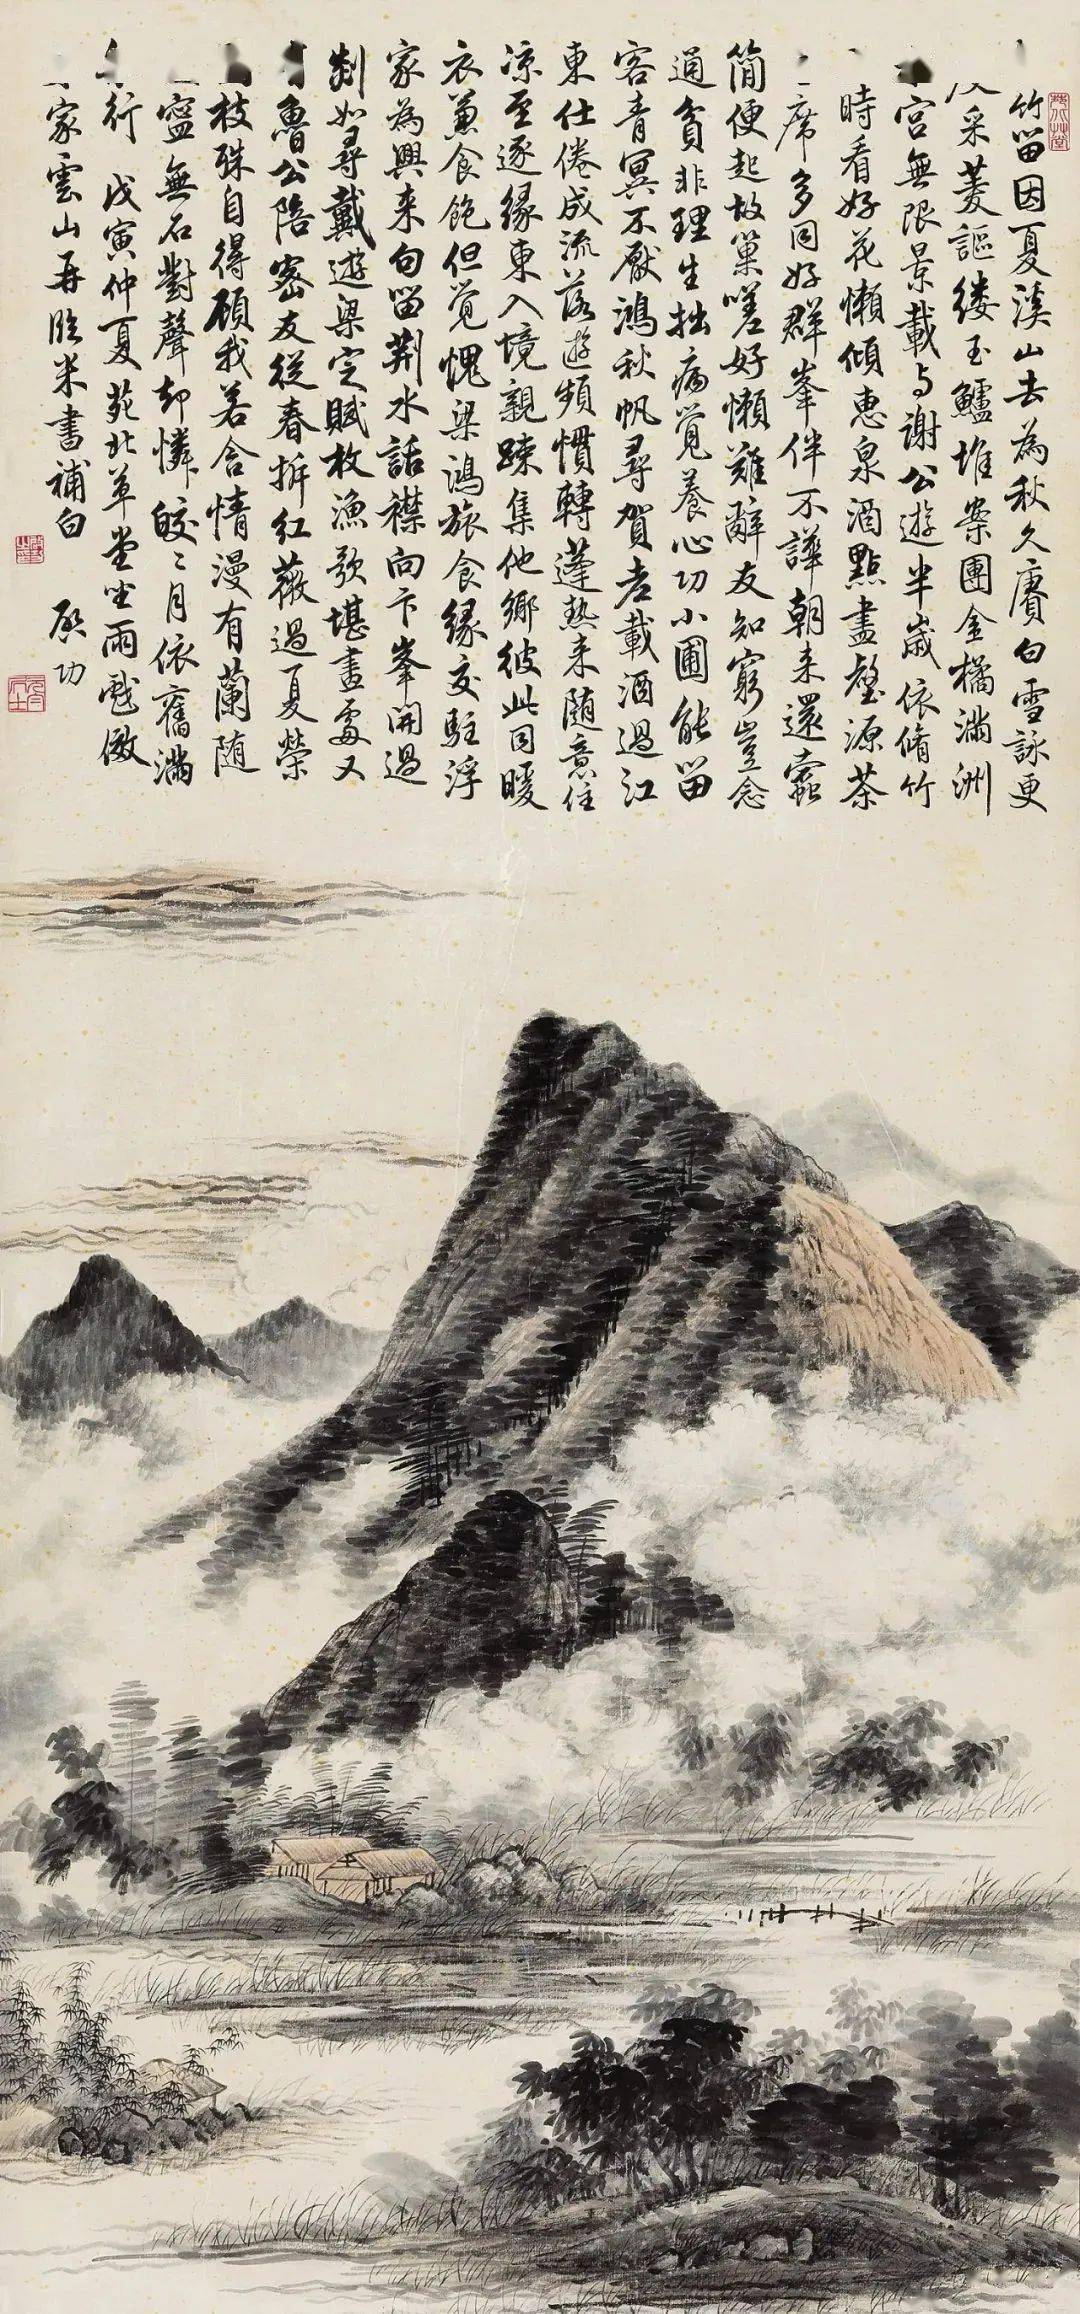 竹留因夏溪山去為秋久賡白雪詠更
采菱謳縷玉鱸堆案團金橘滿洲
宮無限景載与謝公遊半歲依脩竹
時看好花懶傾惠泉酒點盡壑源茶
席多同好群峯伴不譁朝来還蠹
簡便起故巢嗟好懶難辭友知窮豈念
通貧非理生拙病覺養心功小圃能留
客青冥不厭鴻秋帆尋賀老載酒過江
東仕倦成流落遊頻慣轉蓬熱来随意住
凉至逐緣東入境親疎集他鄉彼此同暖
衣兼食飽但覺愧梁鴻旅食緣交駐浮
家為興来句留荆水話襟向卞峯開過
剡如尋戴遊梁定賦枚漁歌堪畫處又
魯公陪密友從春拆紅薇過夏榮
枝殊自得顧我若含情漫有蘭随
寧無石對聲却憐皎〻月依舊滿
行 戊寅仲夏苑北草堂坐雨戲倣
家雲山再臨米書補白 啟功